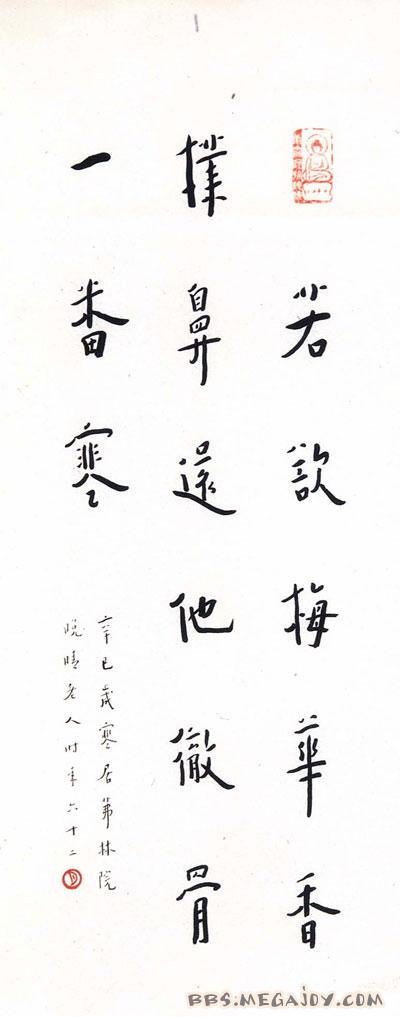 若欲梅華香
撲鼻還他徹骨
一番寒
辛巳歲寒居茀林院
晚晴老人时年六十二
BBS.MEGAJOY.COM